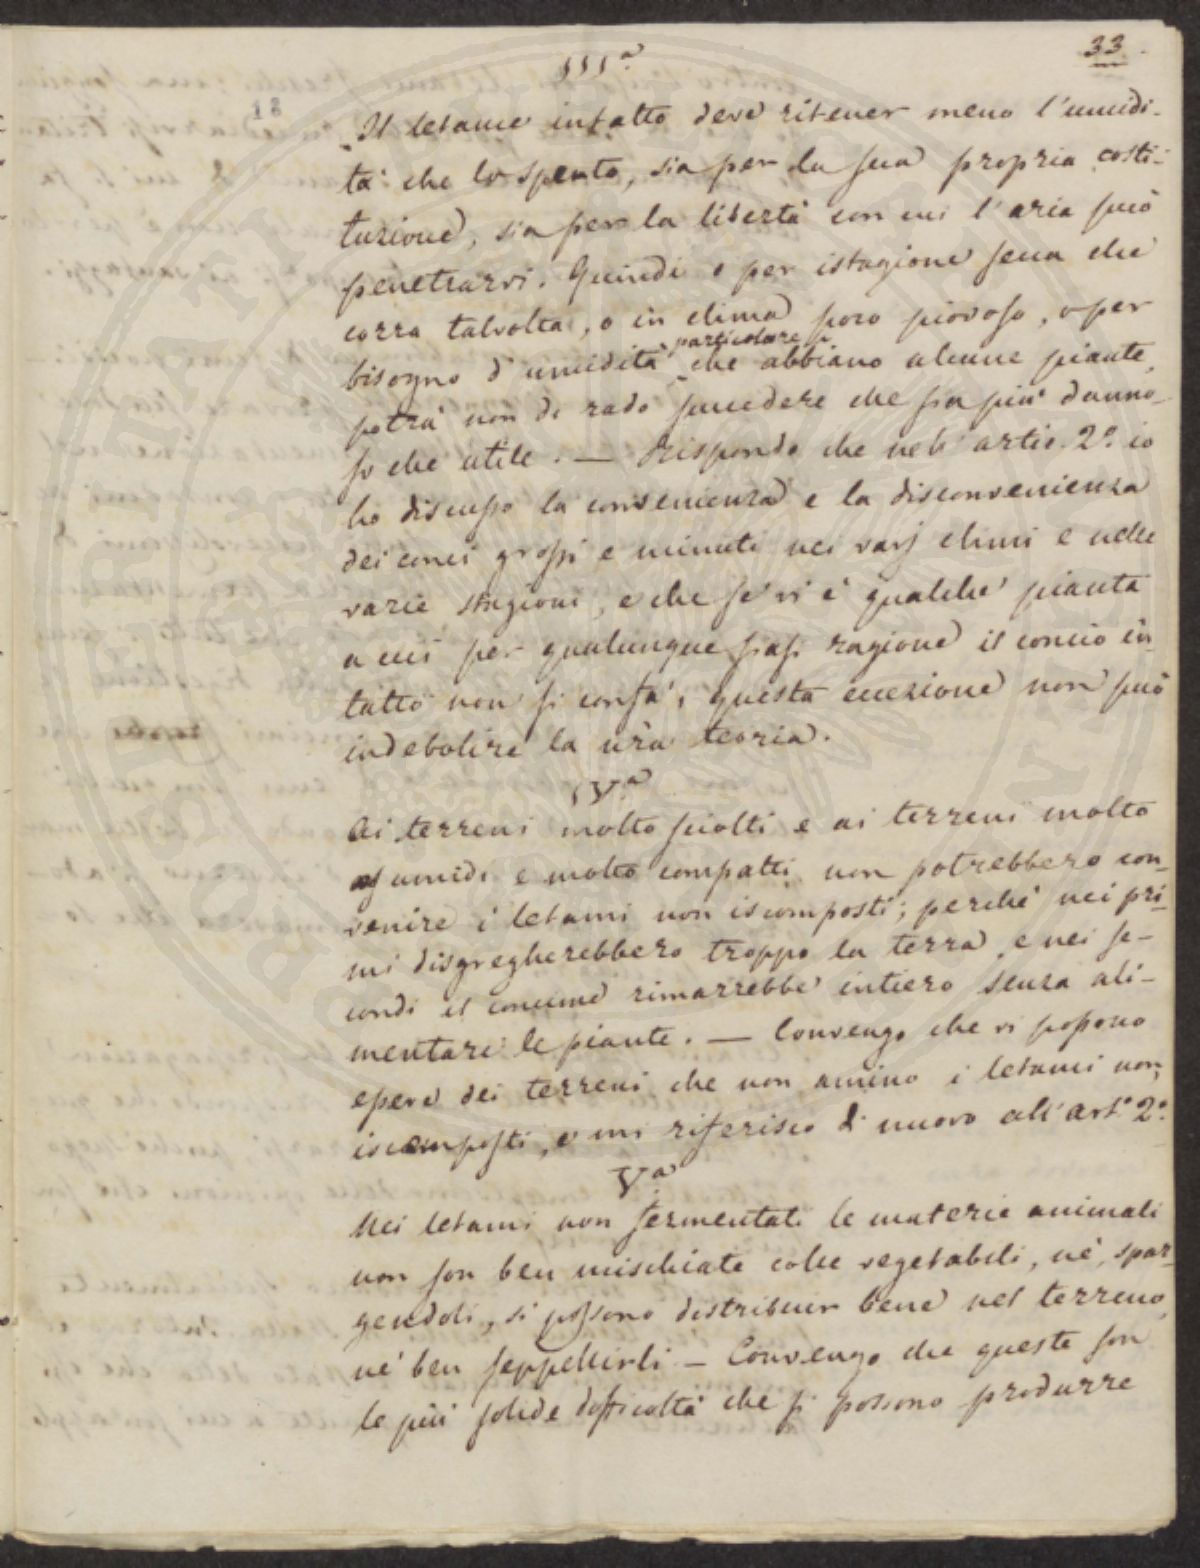 33
IIIª
18
Il letame intatto deve ritener meno l'umidi-
tà che lo spento, sia per la sua propria costi-
tuzione, sia per la libertà con cui l'aria può
penetrarvi. Quindi o per istagione secca che
corra talvolta, o in clima poco piovoso, o per
particolare
bisogno d'umidità che abbiano alcune piante,
potrà non di rado succedere che sia più danno-
so che utile. — Rispondo che nell'artic. 2º io
ho discusso la convenienza e la disconvenienza
dei conci grossi e minuti nei varj climi e nelle
varie stagioni, e che se vi è qualche pianta
a cui per qualunque siasi ragione il concio in
tatto non si confà, questa eccezione non può
indebolire la nr̃a teoria.
IVª
Ai terreni molto sciolti e ai terreni molto
umidi e molto compatti non potrebbero con-
venire i letami non iscomposti; perchè nei pri-
mi disgregherebbero troppo la terra, e nei se-
condi il concime rimarrebbe intiero senza ali-
mentare le piante. — Convengo che vi possono
essere dei terreni che non amino i letami non
iscomposti, e mi riferisco di nuovo all'artº 2º.
Vª
Nei letami non fermentati le materie animali
non son ben mischiate colle vegetabili, nè, spar-
gendoli, si possono distribuir bene nel terreno,
nè ben seppellirli — Convengo che queste son
le più solide difficoltà che si possono produrre